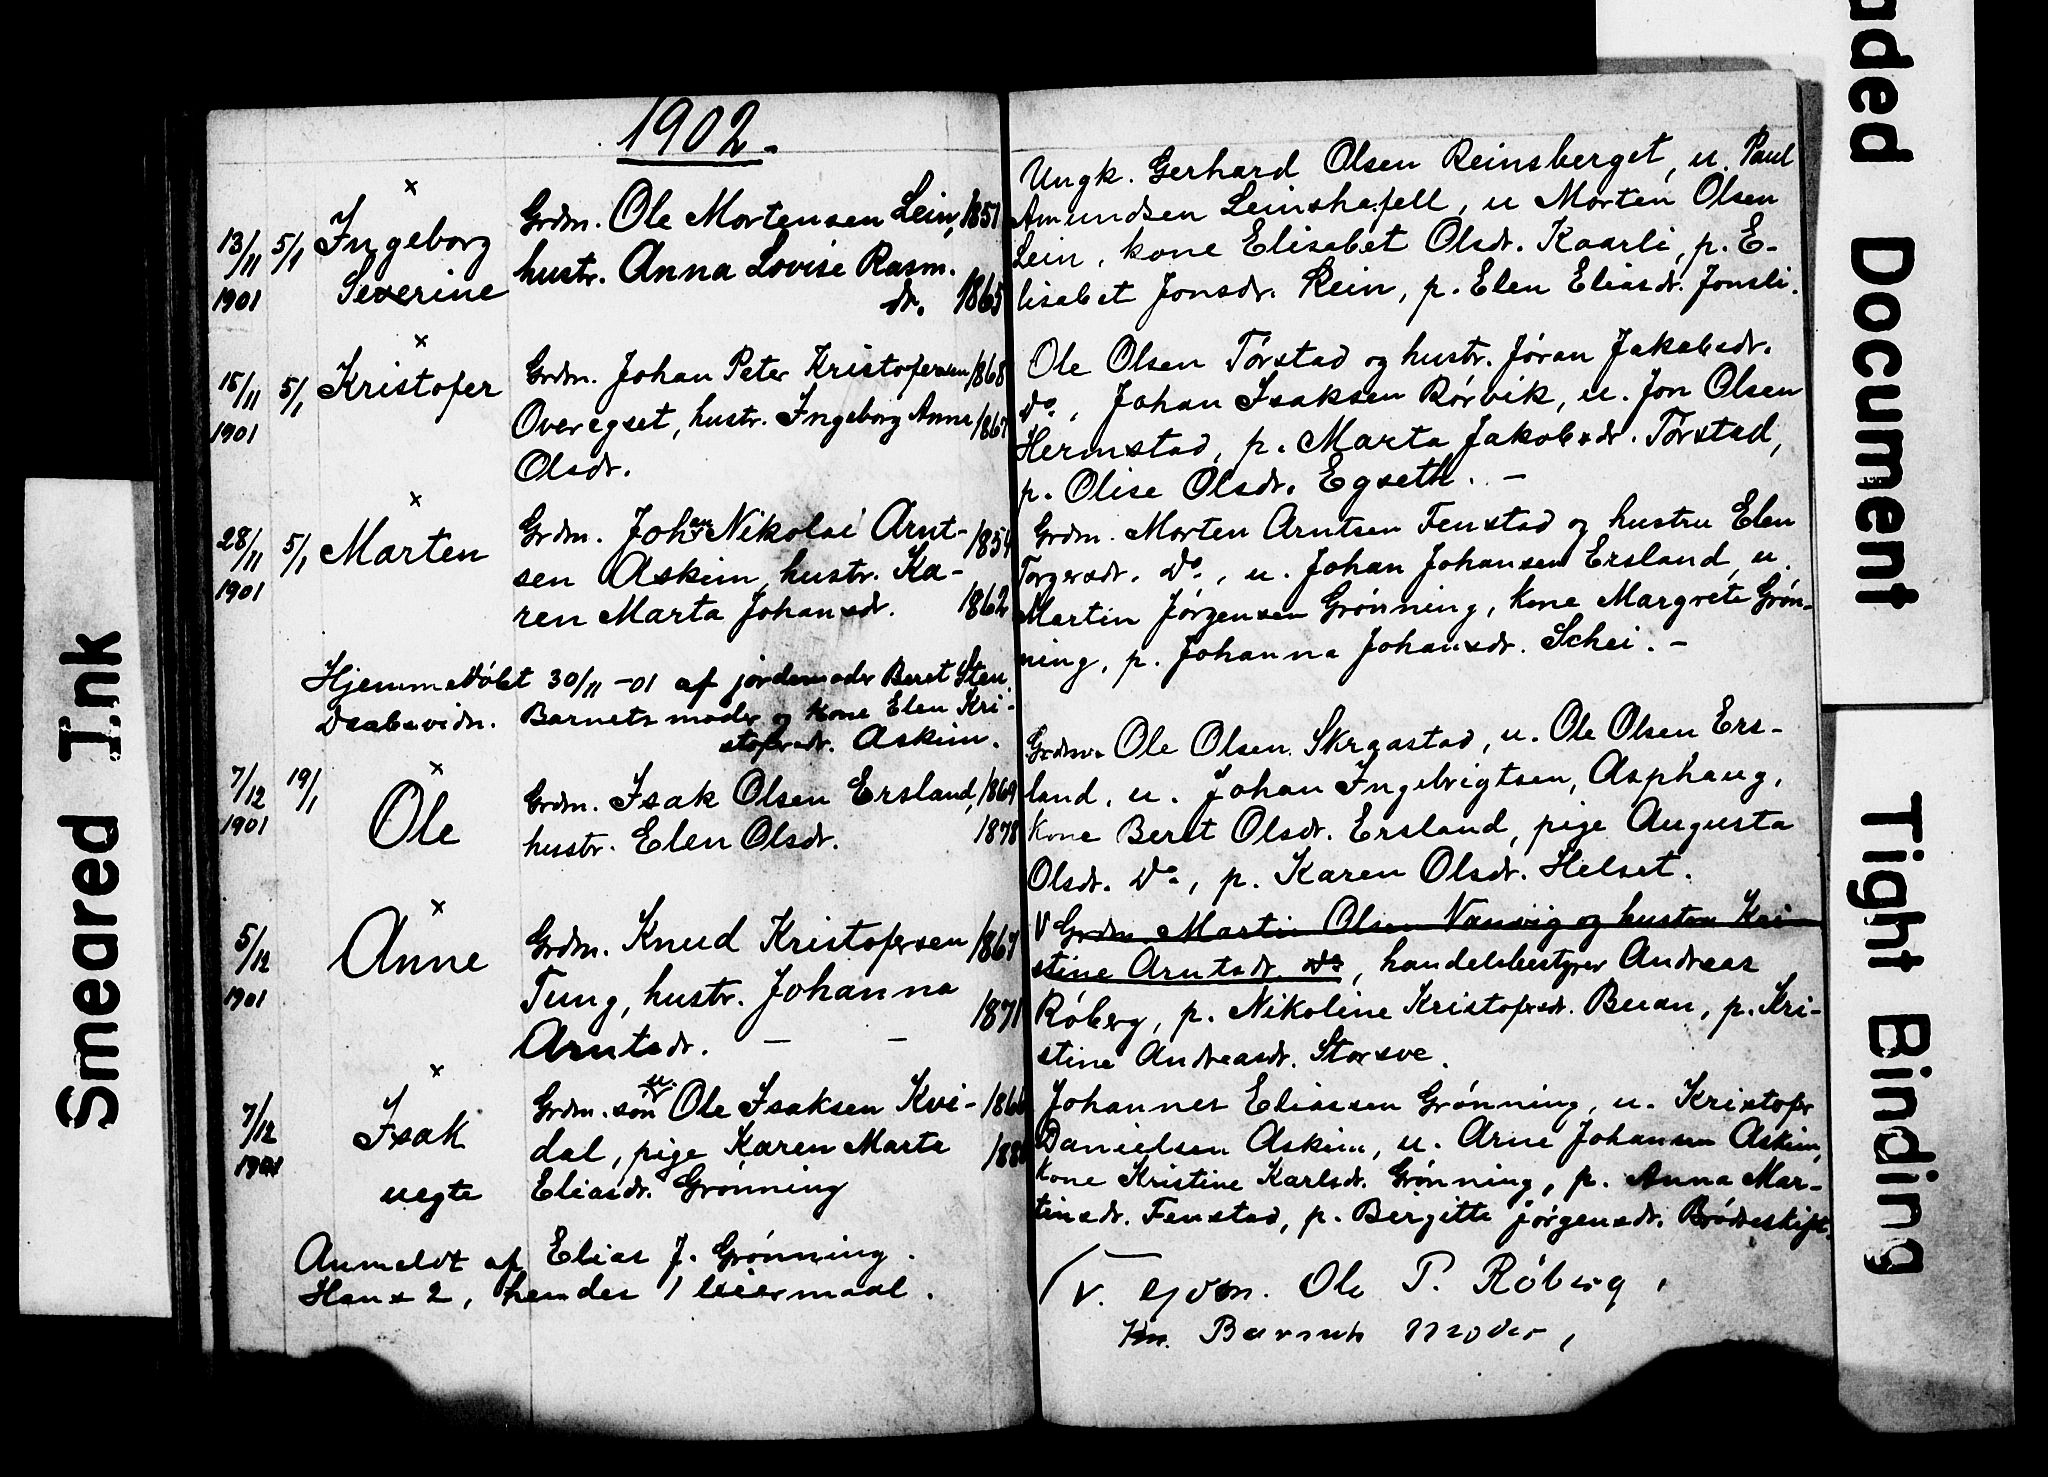 1902.
×
13/11 5/1 Ingeborg Grdm. Ole Mortensen Lein, 1851
1901 Severine hustr. Anna Lovise Rasm.
dr. 1865
×
15/11 5/1 Kristofer Grdm. Johan Peter Kristofersen 1868
1901 Overegset, hustr. Ingeborg Anna 1867
Olsdr.
×
28/11 5/1 Marten Grdm. Johan Nikolai Arnt- 1854
1901 sen Askim, hustr. Ka-
ren Marta Johansdr. 1862
Hjemmedøbt 30/11 -01 af jordemoder Beret Sten.
Daabsvidn. Barnets moder og kone Elen Kri-
stofersdr. Askim.
×
7/12 19/1 Ole Grdm. Isak Olsen Ersland, 1869
1901 hustr. Elen Olsdr. 1878
×
5/12 Anne Grdm. Knud Kristofersen 1867
1901 Tung, hustr. Johanna 1871
Arntsdr. — —
×
7/12 Isak Grdm. søn u. Ole Isaksen Kvi- 1866
1901 dal, pige Karen Marta
uegte Eliasdr. Grønning
Anmeldt af Elias J. Grønning.
Hans 2, hendes 1 leiermaal.
Ungk. Gerhard Olsen Reinsberget, u. Paul
Amundsen Leinshafell, u Morten Olsen
Lein, kone Elisabet Olsdr. Kaarli, p. E-
lisabet Jonsdr. Rein, p. Elen Eliasdr. Jonsli.
Ole Olsen Tørstad og hustr. Jøran Jakobsdr.
do., Johan Isaksen Rørvik, u. Jon Olsen
Hermstad, p. Marta Jakobsdr. Tørstad,
p. Olise Olsdr. Egseth. —
Grdm. Morten Arntsen Fenstad og hustru Elen
Torgersdr. do., u. Johan Johansen Ersland, u.
Martin Jørgensen Grønning, kone Margrete Grøn-
ning, p. Johanna Johansdr. Schei. —
Grdm. Ole Olsen Skraastad, u. Ole Olsen Ers-
land, u. Johan Ingebrigtsen, Asphaug,
kone Beret Olsdr. Ersland, pige Augusta
Olsdr. do., p. Karen Olsdr. Helset.
V Grdm. Martin Olsen Vanvig og hustru Kri-
stine Arntsdr. do, handelsbestyrer Andreas
Røberg, p. Nikoline Kristofersdr. Buan, p. Kri-
stine Andreasdr. Storsve.
Johannes Eliassen Grønning, u. Kristofer
Danielsen Askim, u. Arne Johansen Askim,
kone Kristine Karlsdr. Grønning, p. Anna Mar-
tinsdr. Fenstad, p. Bergitte Jørgensdr. Brødreskift.
V. Ole P. Røberg,
Barnets Moder,
Smeared Ink
aded Document
Tight Binding